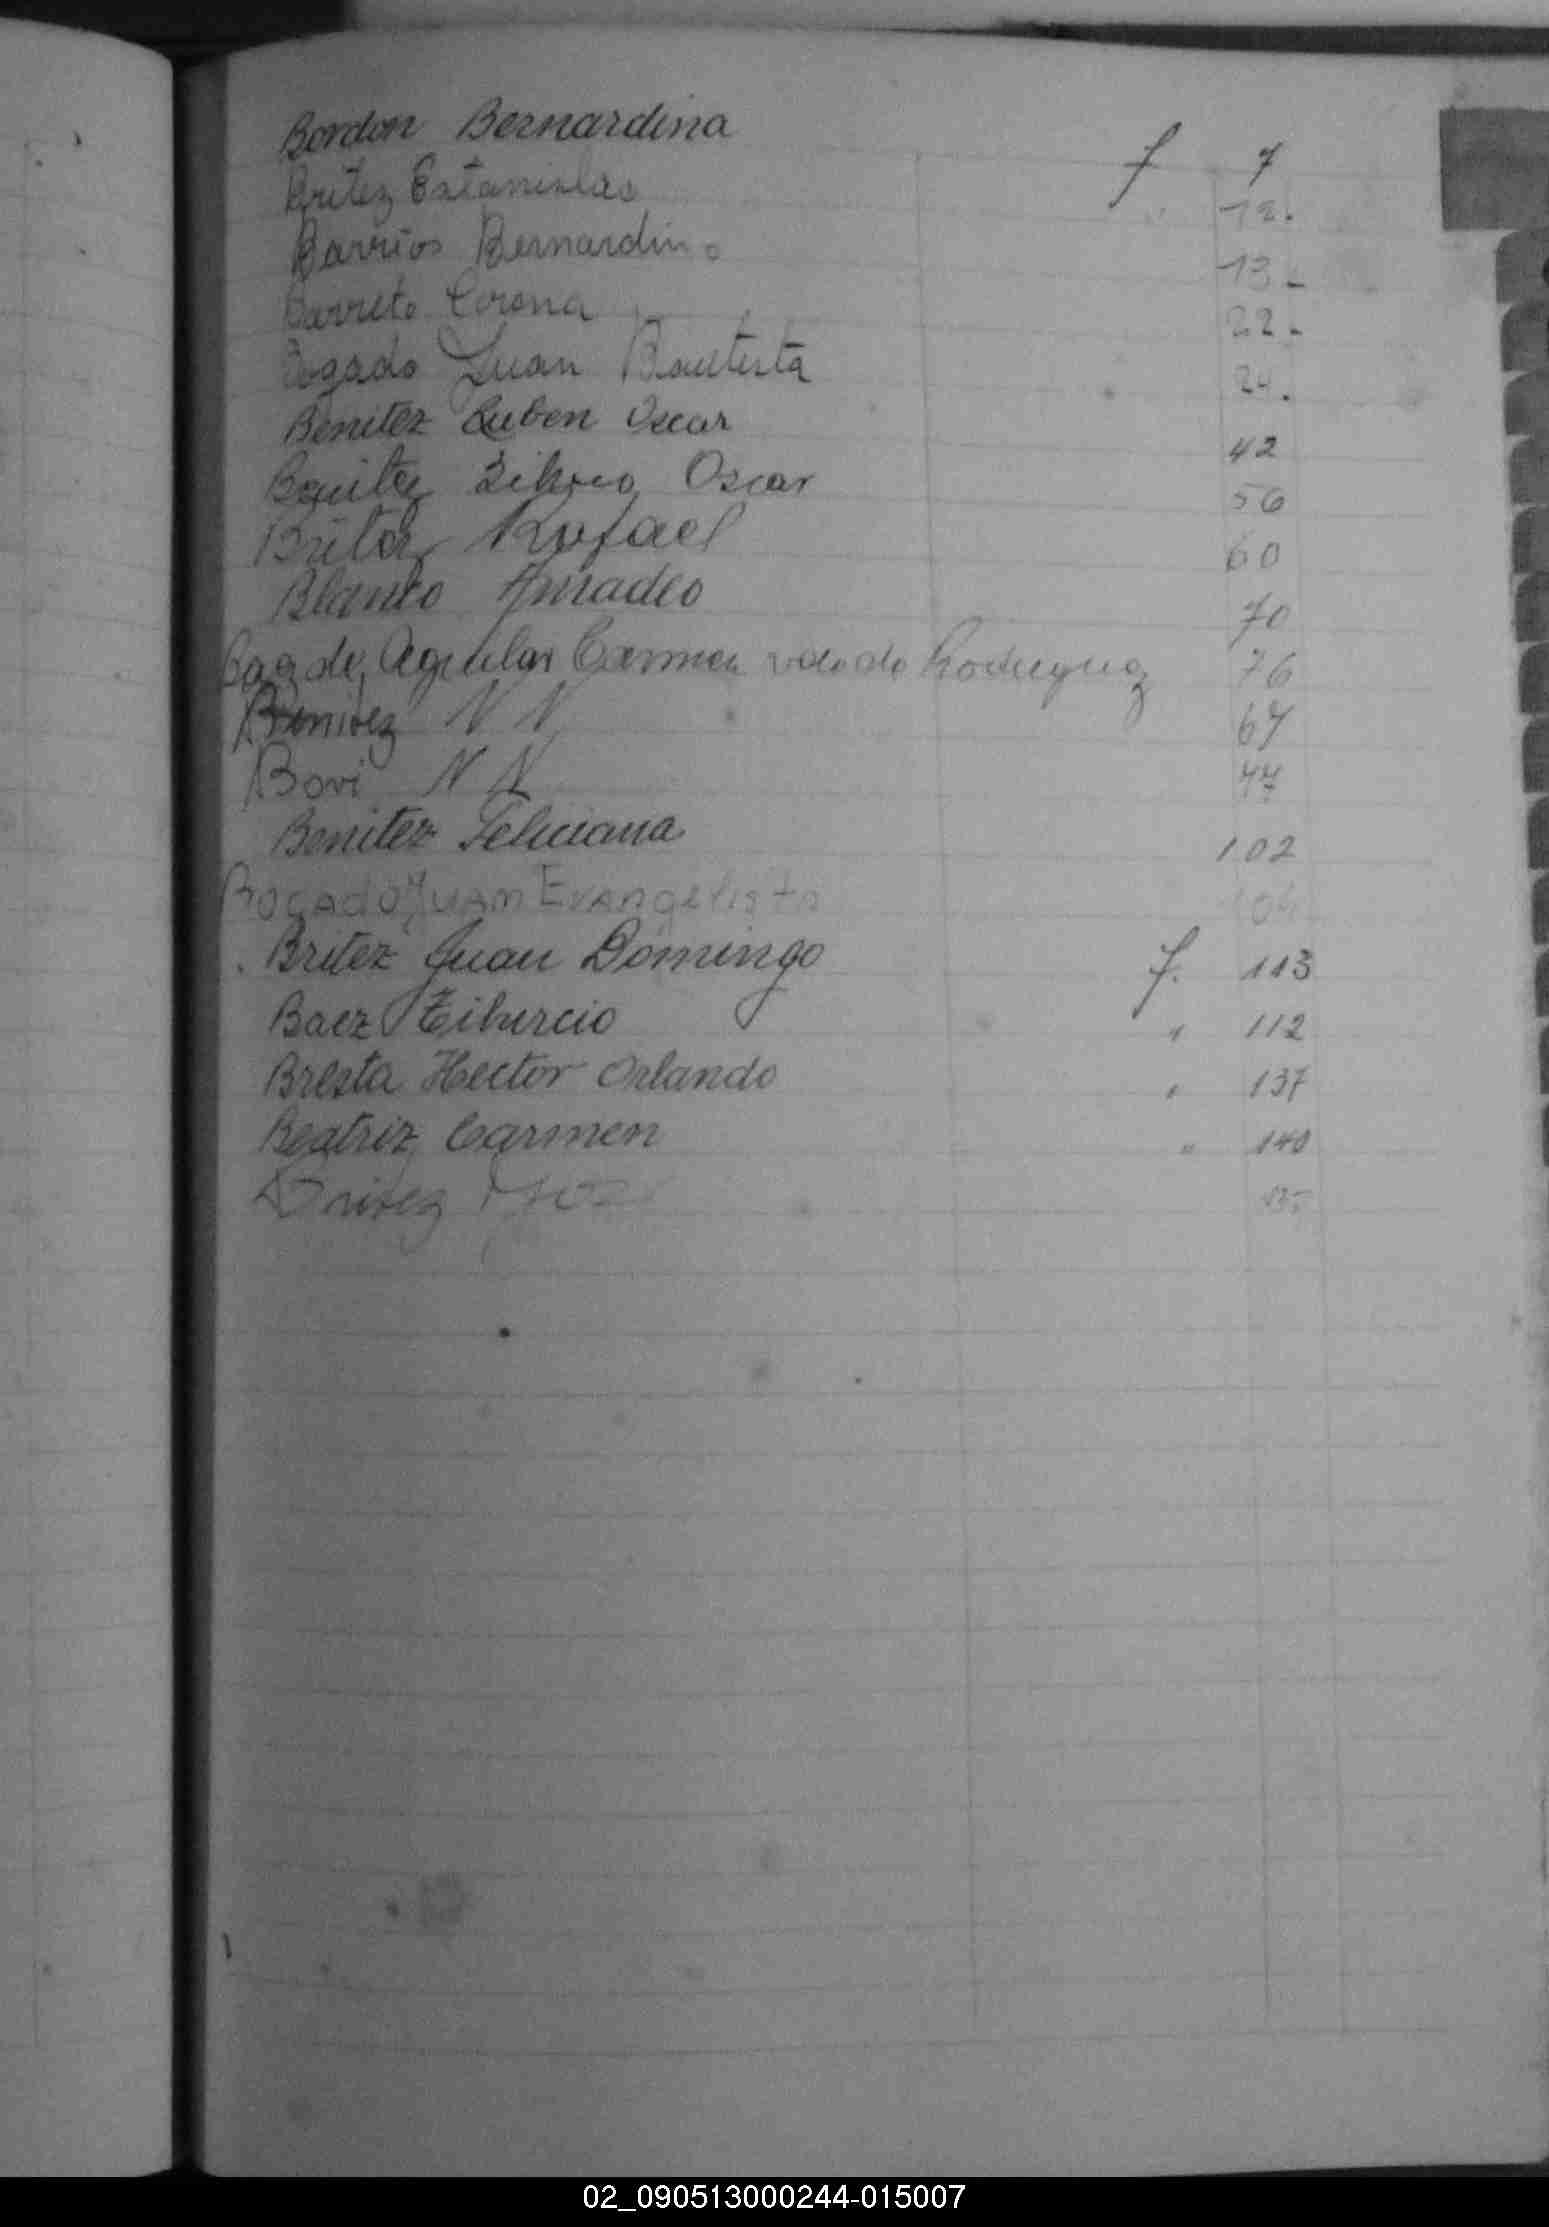 Bordon Bernardina f 7
Britez Estanislao " 12.
Barrios Bernardino 13.
Barreto Corona 22.
Bogado Juan Bautista 24.
Benitez Luben Oscar 42
Benitez Silvio Oscar 56
Britez Rafael 60
Blanco Amadeo 70
Baez de Aguilar Carmen vda de Rodriguez 76
Benitez N N 67
Bovi N N 47
Benitez Feliciana 102
Bogado Juan Evangelista 104
Britez Juan Domingo f. 113
Baez Tiburcio " 112
Bresta Hector Orlando " 137
Beatriz Carmen " 140
Britez
02_090513000244-015007